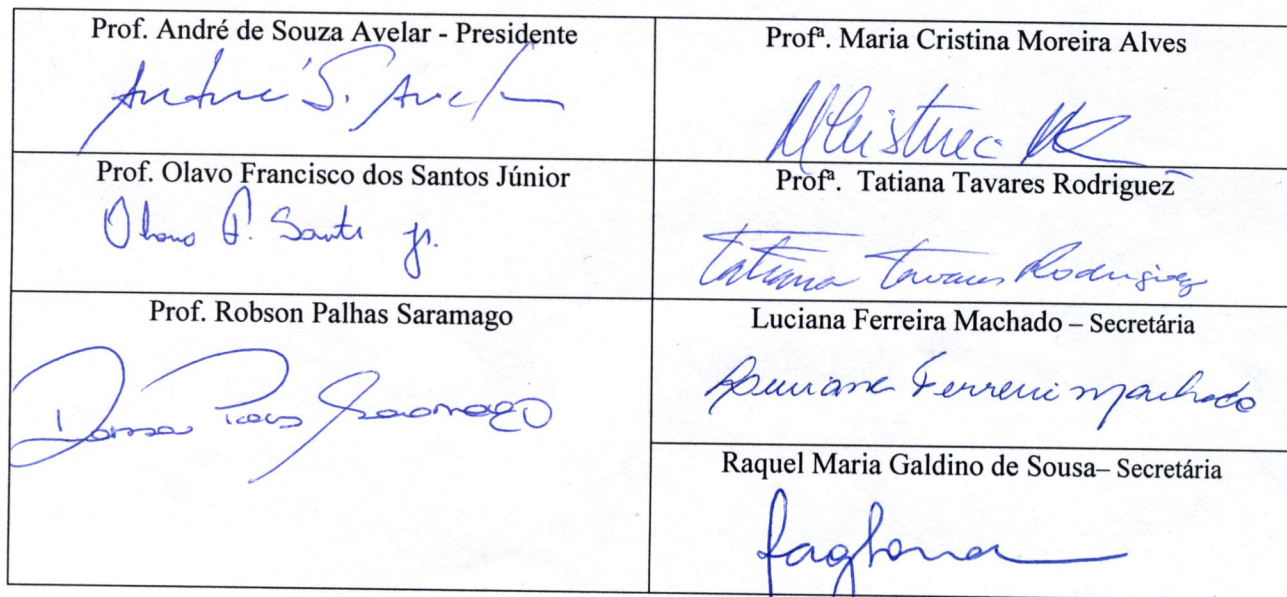 Prof. André de Souza Avelar - Presidente
André S. Avelar
Profª. Maria Cristina Moreira Alves
Prof. Olavo Francisco dos Santos Júnior
Olavo F. Santos Jr.
Profª. Tatiana Tavares Rodriguez
Tatiana Tavares Rodriguez
Prof. Robson Palhas Saramago
Saramago
Luciana Ferreira Machado – Secretária
Luciana Ferreira Machado
Raquel Maria Galdino de Sousa– Secretária